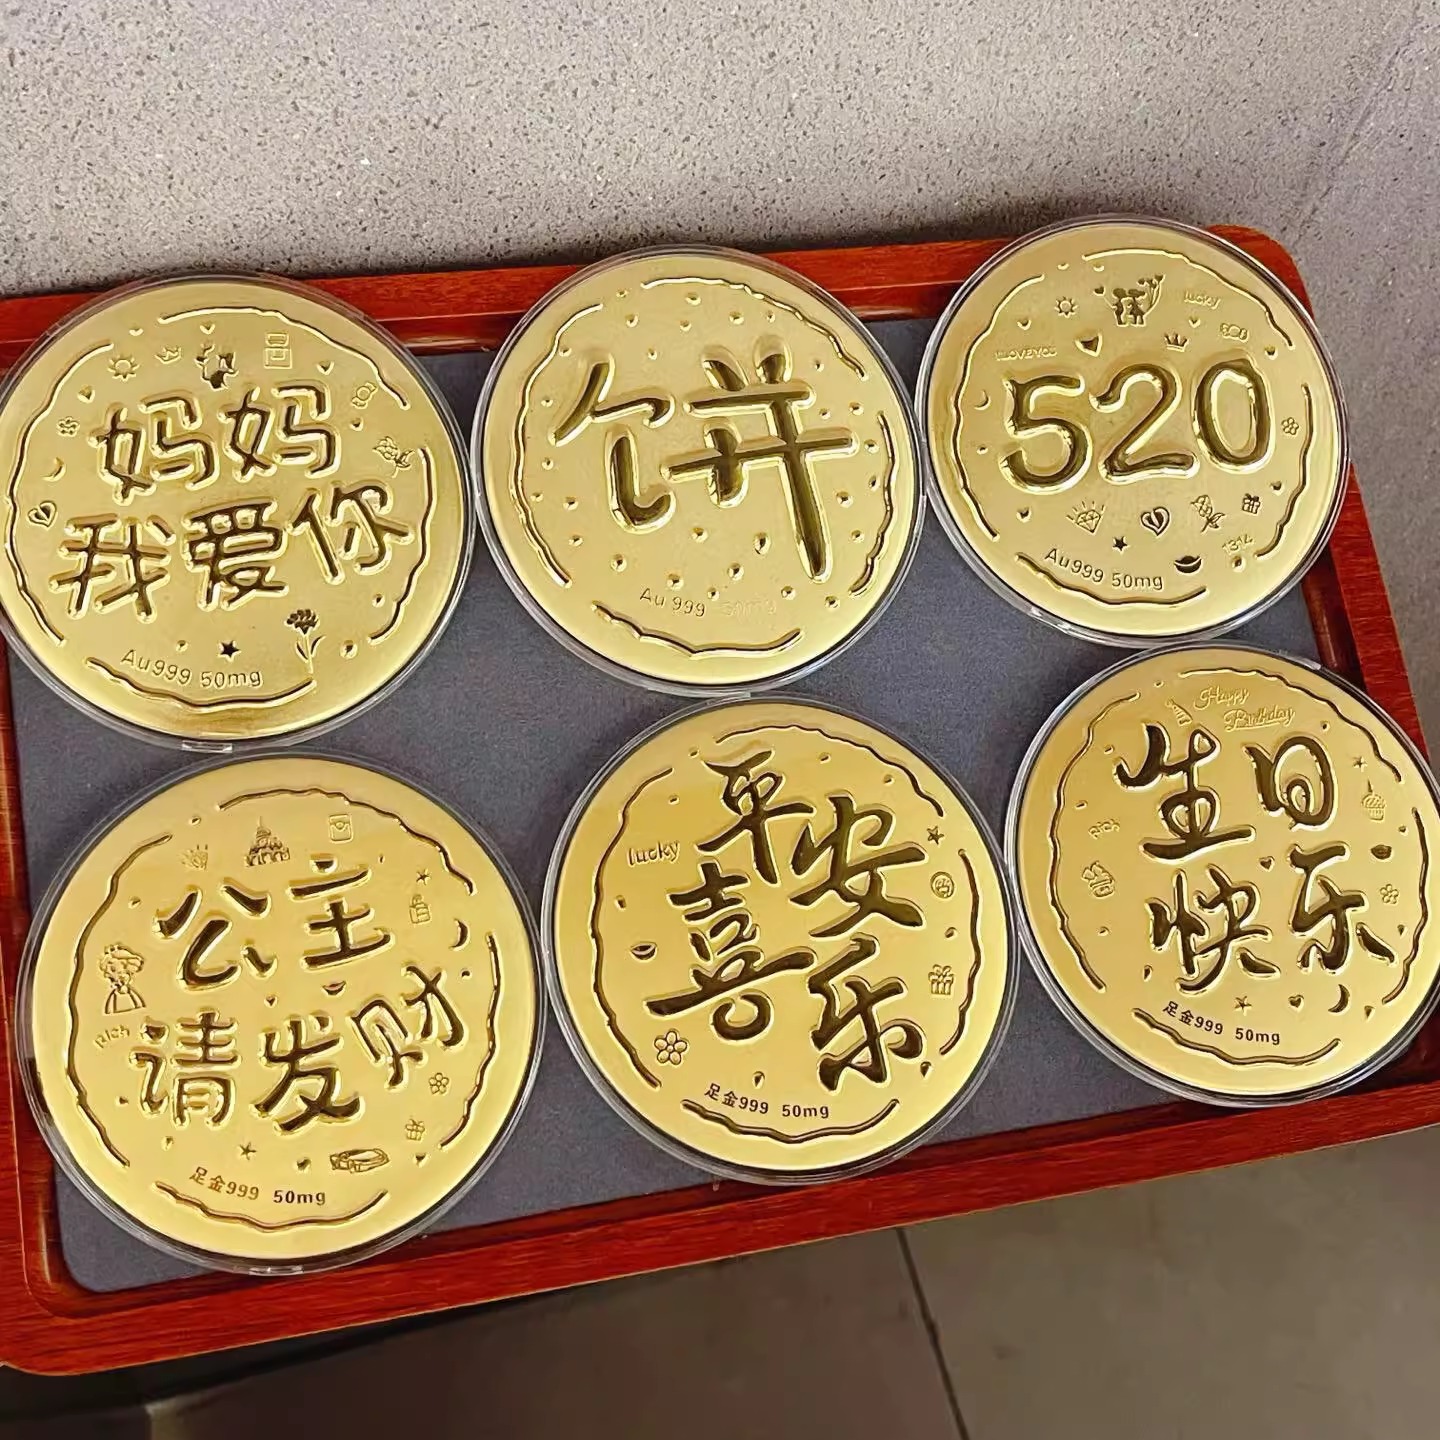 妈妈
我爱你
Au999 50mg
饼
Au 999 50mg
lucky
I LOVE YOU
520
1314
Au999 50mg
公主
请发财
Rich
足金999 50mg
lucky
平安
喜乐
足金999 50mg
Happy
Birthday
生日
快乐
足金999 50mg